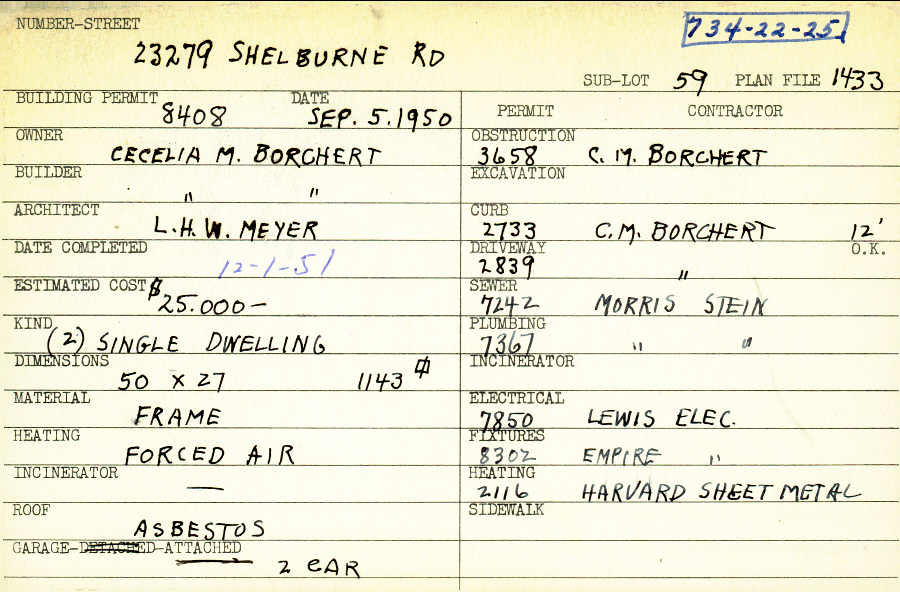 NUMBER-STREET
734-22-25
23279 SHELBURNE RD
SUB-LOT 59 PLAN FILE 1433
BUILDING PERMIT 8408 DATE SEP. 5. 1950
PERMIT CONTRACTOR
OWNER CECELIA M. BORCHERT
OBSTRUCTION 3658 C. M. BORCHERT
BUILDER " "
EXCAVATION
ARCHITECT L. H. W. MEYER
CURB 2733 C. M. BORCHERT 12' O.K.
DATE COMPLETED 12-1-51
DRIVEWAY 2839 "
ESTIMATED COST $25.000-
SEWER 7242 MORRIS STEIN
KIND (2) SINGLE DWELLING
PLUMBING 7367 " "
DIMENSIONS 50 x 27 1143
INCINERATOR
MATERIAL FRAME
ELECTRICAL 7850 LEWIS ELEC.
HEATING FORCED AIR
FIXTURES 8302 EMPIRE "
INCINERATOR —
HEATING 2116 HARVARD SHEET METAL
ROOF ASBESTOS
SIDEWALK
GARAGE-DETACHED-ATTACHED
2 CAR